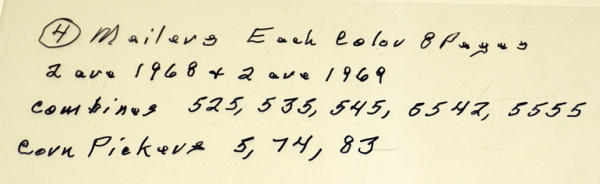 ④ Mailers Each Color 8 Pages
2 are 1968 & 2 are 1969
Combines 525, 535, 545, 5542, 5555
Corn Pickers 5, 74, 83